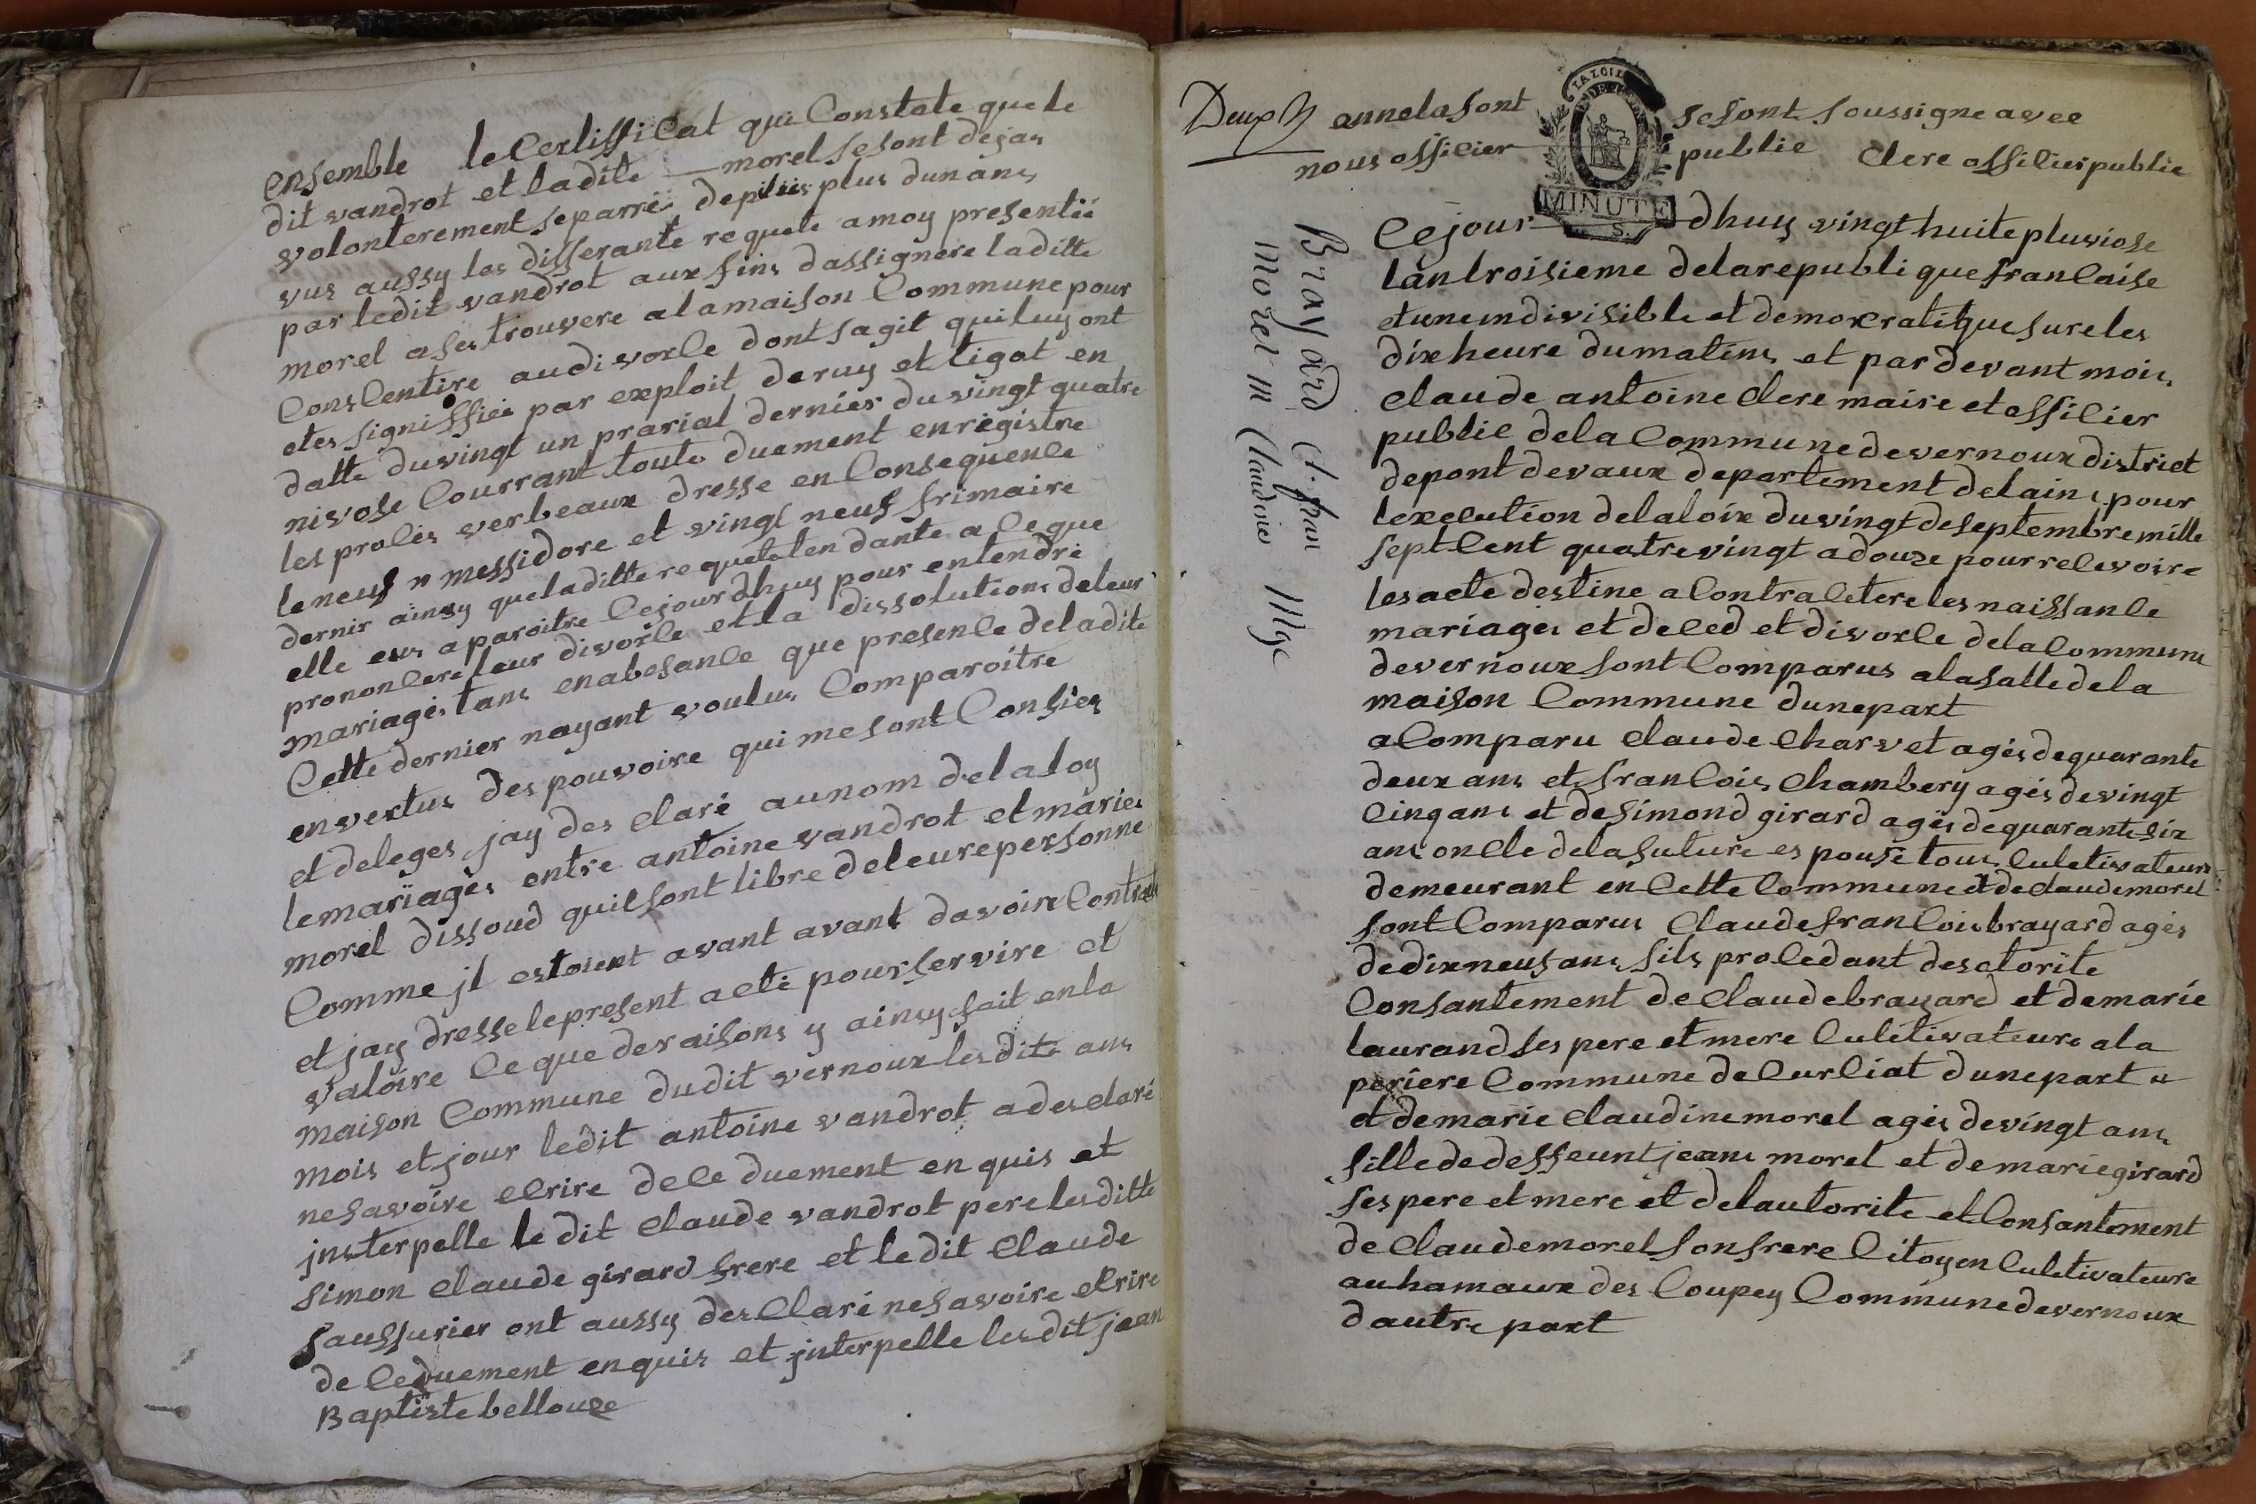 ensemble le Certifficat qui Constate que le
dit vandrot et ladite morel se sont dejas
volonterement separréé depuis plus dun ans
vus aussy les differante requete amoy presentéé
par ledit vandrot aux fins dassignere laditte
morel a ses trouvere alamaison Commune pour
Conscentire audivorce dont sagit quiluy ont
etes signiffiéé par exploit deruy et ligat en
datte duvingt un prarial dernier du vingt quatre
nivose Courrant toute duement enregistre
les proces verbeaux dresse en Consequence
le neuf n messidore et vingt neuf frimaire
dernir ainsy queladitte requete tendante a ceque
elle eus aparoitre Cejourdhuy pour entendre
prononcere leur divorce et la dissolutions deleur
mariages tans enabesance que presence deladite
Cette dernier nayant voulus Comparoitre
envertus des pouvoire qui me sont Confies
et deleges jay des claré aunom delaloy
lemariages entre antoine vandrot et maries
morel dissoud quil sont libre deleurepersonne
Comme jl estoient avant avant davoire Contracté
et jay dresselepresent acte pourservire et
valoire Ceque deraisons y ainsy fait enla
maison Commune dudit vernoux lesdite ans
mois et jour ledit antoine vandrot adesclaré
nesavoire ecrire dece duement enquis et
jnsterpelle le dit Claude vandrot pere lesditte
simon claude girard frere et ledit Claude
faussurier ont aussy desclaré nesavoire ecrire
de ceduement enquis et jnterpelle lesdit jean
Baptiste bellouze
Deux annelasont sesont soussigne avec
nous officier publie clere officier publie
LA LOI
MINUTE
S.
Brayard C. fran
morel m Claudine Mge
Cejour dhuy vingt huite pluviose
lantroisieme delarepublique francaise
etuneindivisible et democratique sureles
dixheure dumatins et par devant mois
claude antoine clere maire et officier
publie dela Commune devernoux district
depontdevaux departement delains pour
lexecution delaloix duvingt deseptembremille
septcent quatrevingt adouze pourrelevoire
lesacte destine a Contracletere les naissance
mariages et deced et divorce delaCommune
devernoux sont Comparus alasalledela
maison Commune dunepart
aComparu claude Charvet ages dequarante
deux ans et francois Chambery ages devingt
cinqans et desimond girard ages dequarantesix
ans oncle delafuture espouse tous Culetivateurs
demeurant en Cette Commune et declaudemorel
sont Comparus claudefrancois brayard ages
dedixneufans fils procedant desctorite
Consantement de Claudebrayard et demarie
laurand ses pere et mere Culetivateure ala
periere Commune deCurciat dunepart
et demarie claudine morel ages devingt ans
fille dedeffeunt jeans morel et demariegirard
ses pere et mere et delautorite et Consantement
de Claudemorel sonfrere Citoyen Culetivateure
auhamaux des Coupey Communedevernoux
dautre part